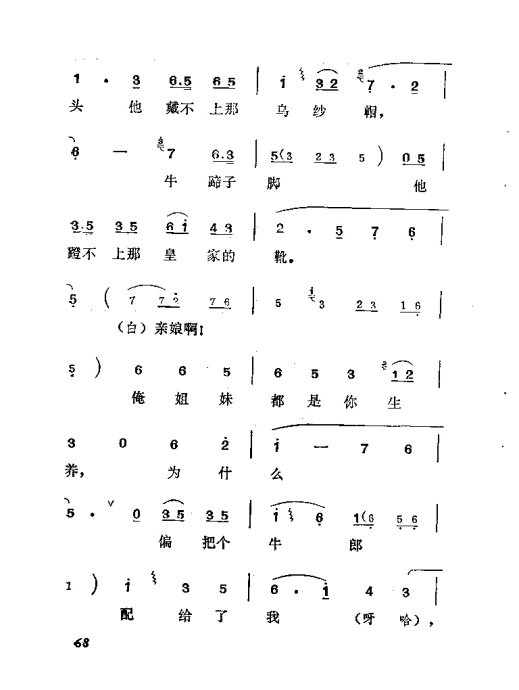 1 · 3 6.5 6 5 | i 3 2 7 · 2 |
头 他 戴不 上那 乌 纱 帽，
6 — 7 6.3 | 5 (3 2 3 5 ) 0 5 |
牛 蹄子 脚 他
3.5 3 5 6 i 4 3 | 2 · 5 7 6 |
蹬不 上那 皇 家的 靴。
5 ( 7 7 2 7 6 | 5 i 3 2 3 1 6 |
（白）亲娘啊！
5 ) 6 6 5 | 6 5 3 1 2 |
俺 姐 妹 都 是 你 生
3 0 6 2 | i — 7 6 |
养， 为 什 么
5 · ∨ 0 3 5 3 5 | i 6 1 (6 5 6 |
偏 把个 牛 郎
1 ) i 3 5 | 6 · i 4 3 |
配 给 了 我 （呀 哈），
68